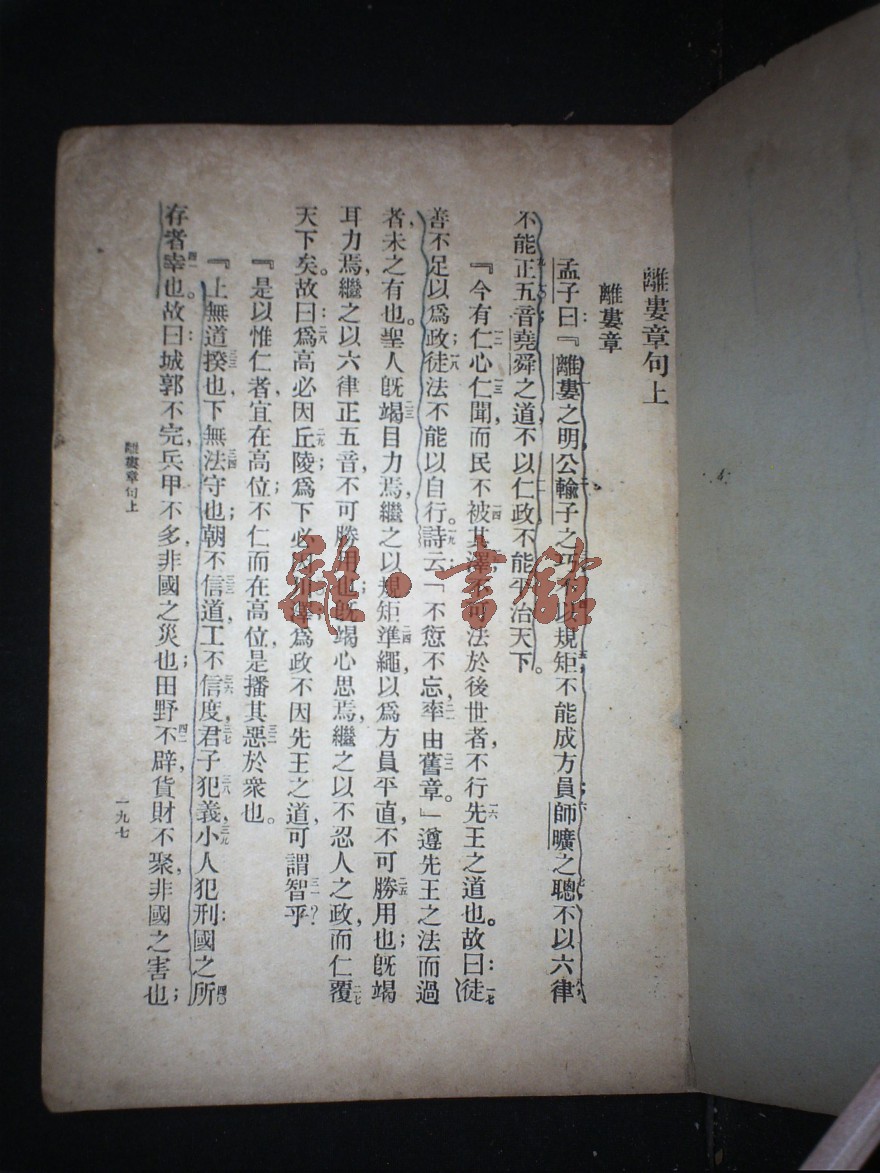 離婁章句上
離婁章
孟子曰：『離婁之明，公輸子之巧，不以規矩，不能成方員；師曠之聰，不以六律，
不能正五音；堯舜之道，不以仁政，不能平治天下。
『今有仁心仁聞，而民不被其澤，不可法於後世者，不行先王之道也。故曰：徒
善不足以爲政；徒法不能以自行。詩云：「不愆不忘，率由舊章。」遵先王之法而過
者，未之有也。聖人既竭目力焉，繼之以規矩準繩，以爲方員平直，不可勝用也；既竭
耳力焉，繼之以六律正五音，不可勝用也；既竭心思焉，繼之以不忍人之政，而仁覆
天下矣。故曰：爲高必因丘陵；爲下必因川澤；爲政不因先王之道，可謂智乎？
『是以惟仁者宜在高位；不仁而在高位，是播其惡於衆也。
『上無道揆也，下無法守也；朝不信道，工不信度，君子犯義，小人犯刑：國之所
存者幸也。故曰：城郭不完，兵甲不多，非國之災也；田野不辟，貨財不聚，非國之害也；
離婁章句上
一九七
雜·書館